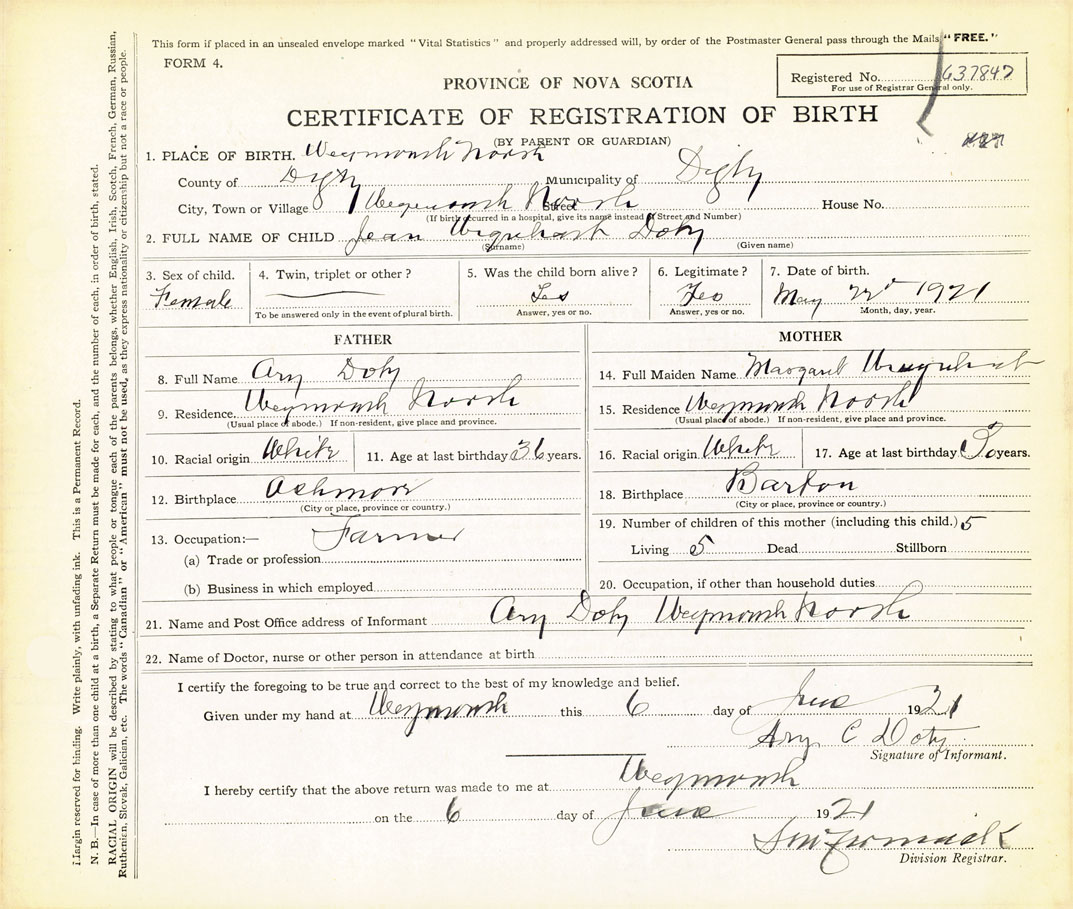 This form if placed in an unsealed envelope marked "Vital Statistics" and properly addressed will, by order of the Postmaster General pass through the Mails "FREE."
FORM 4.
Registered No. 637847
For use of Registrar General only.
PROVINCE OF NOVA SCOTIA
CERTIFICATE OF REGISTRATION OF BIRTH
(BY PARENT OR GUARDIAN)
1. PLACE OF BIRTH. Weymouth North
County of Digby Municipality of Digby
City, Town or Village Weymouth North Street House No.
(If birth occurred in a hospital, give its name instead of Street and Number)
2. FULL NAME OF CHILD Jean Urquhart Doty
(Surname) (Given name)
3. Sex of child. 4. Twin, triplet or other? 5. Was the child born alive? 6. Legitimate? 7. Date of birth.
Female Yes Yes May 22d 1921
To be answered only in the event of plural birth. Answer, yes or no. Answer, yes or no. Month, day, year.
FATHER
8. Full Name Ary Doty
9. Residence. Weymouth North
(Usual place of abode.) If non-resident, give place and province.
10. Racial origin White 11. Age at last birthday 36 years.
12. Birthplace Ashmore
(City or place, province or country.)
13. Occupation:— Farmer
(a) Trade or profession
(b) Business in which employed
MOTHER
14. Full Maiden Name Margaret Urquhart
15. Residence Weymouth North
(Usual place of abode.) If non-resident, give place and province.
16. Racial origin White 17. Age at last birthday 30 years.
18. Birthplace Barton
(City or place, province or country.)
19. Number of children of this mother (including this child.) 5
Living 5 Dead Stillborn
20. Occupation, if other than household duties
21. Name and Post Office address of Informant Ary Doty Weymouth North
22. Name of Doctor, nurse or other person in attendance at birth
I certify the foregoing to be true and correct to the best of my knowledge and belief.
Given under my hand at Weymouth this 6 day of June 1921
Ary C Doty
Signature of Informant.
I hereby certify that the above return was made to me at Weymouth
on the 6 day of June 1921
Division Registrar.
Margin reserved for binding. Write plainly, with unfading ink. This is a Permanent Record.
N. B.—In case of more than one child at a birth, a Separate Return must be made for each, and the number of each, in order of birth, stated.
RACIAL ORIGIN will be described by stating to what people or tongue each of the parents belongs, whether English, Irish, Scotch, French, German, Russian,
Ruthenian, Slovak, Galician, etc. The words "Canadian" or "American" must not be used, as they express nationality or citizenship but not a race or people.